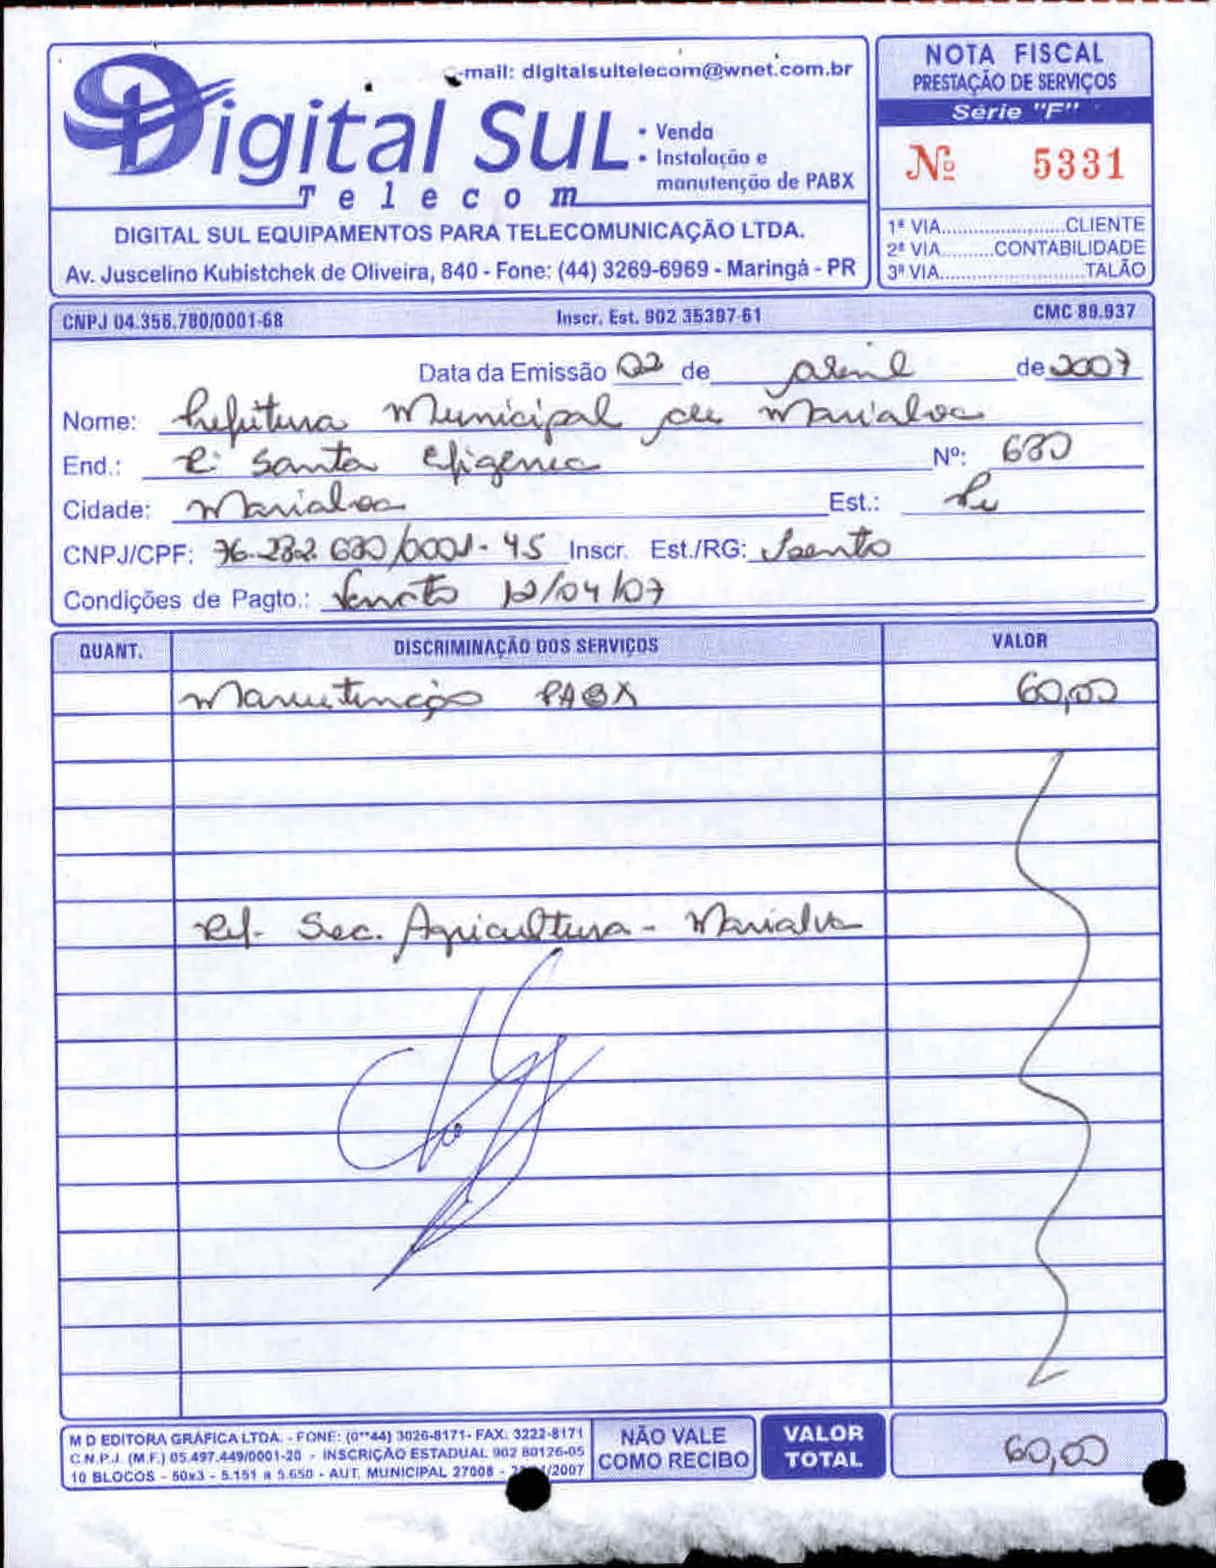 -mail: digitalsultelecom@wnet.com.br
Digital SUL
Telecom
• Venda
• Instalação e
manutenção de PABX
DIGITAL SUL EQUIPAMENTOS PARA TELECOMUNICAÇÃO LTDA.
Av. Juscelino Kubistchek de Oliveira, 840 - Fone: (44) 3269-6969 - Maringá - PR
NOTA FISCAL
PRESTAÇÃO DE SERVIÇOS
Série "F"
Nº 5331
1ª VIA......................CLIENTE
2ª VIA.........CONTABILIDADE
3ª VIA..........................TALÃO
CNPJ 04.356.780/0001-68 Inscr. Est. 902 35387-61 CMC 89.937
Data da Emissão 02 de abril de 2007
Nome: Prefeitura Municipal de Marialva
End.: R. Santa Efigenia Nº: 680
Cidade: Marialva Est.: Pr
CNPJ/CPF: 76.282.680/0001-45 Inscr. Est./RG: Isento
Condições de Pagto.: Vencto 12/04/07
QUANT. DISCRIMINAÇÃO DOS SERVIÇOS VALOR
Manutenção PABX 60,00
Ref. Sec. Agricultura - Marialva
M D EDITORA GRÁFICA LTDA. - FONE: (0**44) 3026-8171 - FAX: 3222-8171
C.N.P.J. (M.F.) 05.497.449/0001-20 - INSCRIÇÃO ESTADUAL 902 80126-05
10 BLOCOS - 50x3 - 5.151 a 5.650 - AUT. MUNICIPAL 27008 - /2007
NÃO VALE
COMO RECIBO
VALOR
TOTAL
60,00